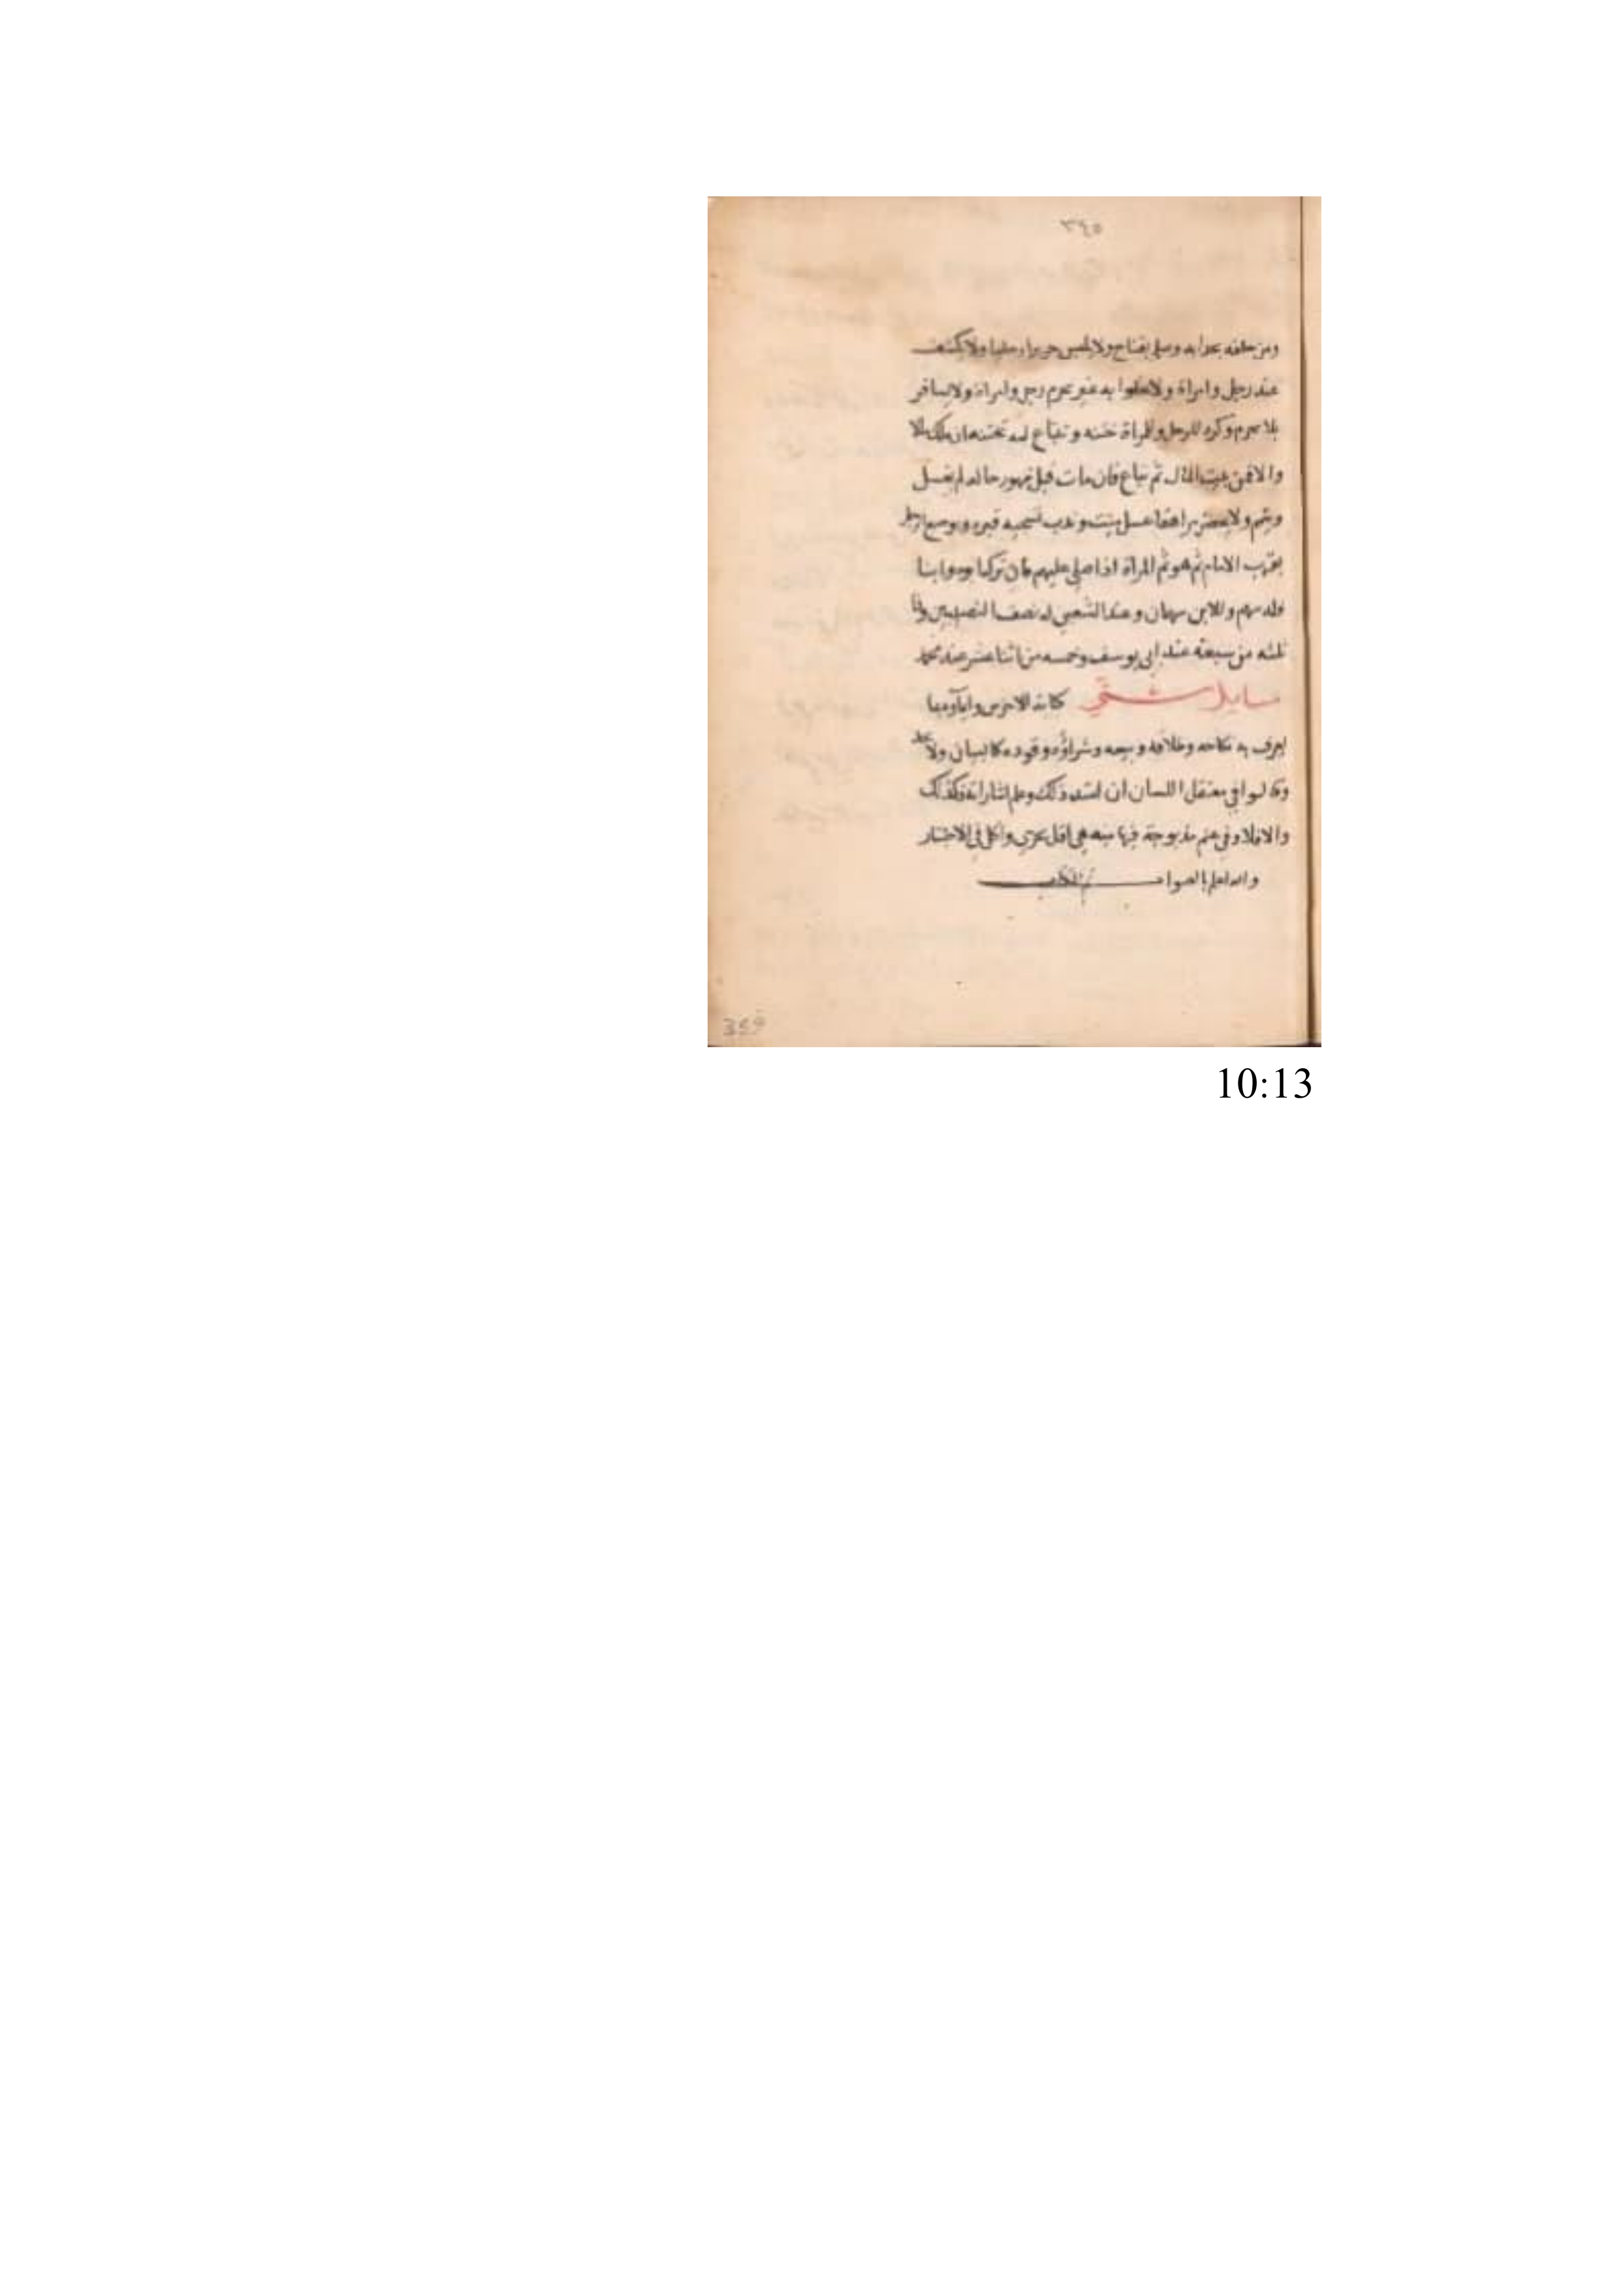 ٣٤٥
ومن خلفه بحذائه وصلى بقناع ولا يلبس حريرا وحليا ولا يكشف
عند رجل وامراة ولا يخلوا به غير محرم رجل وامراة ولا يسافر
بلا محرم وكره للرجل والمراة ختنه وتبتاع امة تختنه ان ملك مالا
والا فمن بيت المال ثم تباع فان مات قبل ظهور حاله لم يغسل
ويتيم ولا يحضر مراهقا غسل ميت وندب تسجية قبره ويوضع الرجل
بقرب الامام ثم هو ثم المراة اذا صلى عليهم فان تركه ابوه وابنا
فله سهم وللابن سهمان وعند الشعبي له نصف النصيبين وذا
ثلثه من سبعة عند ابي يوسف وخمسه من اثنا عشر عند محمد
مسايل شتى كتابة الاخرس وايماؤه بما
يعرف به نكاحه وطلاقه وبيعه وشراؤه وقوده كالبيان ولا يحد
وقالوا في معتقل اللسان ان امتد ذلك وعلم اشاراته فكذلك
والا فلا وفي غنم مذبوحة فيها ميتة هي اقل تحرى واكل في الاختيار
والله اعلم بالصواب تم الكتاب
359
10:13